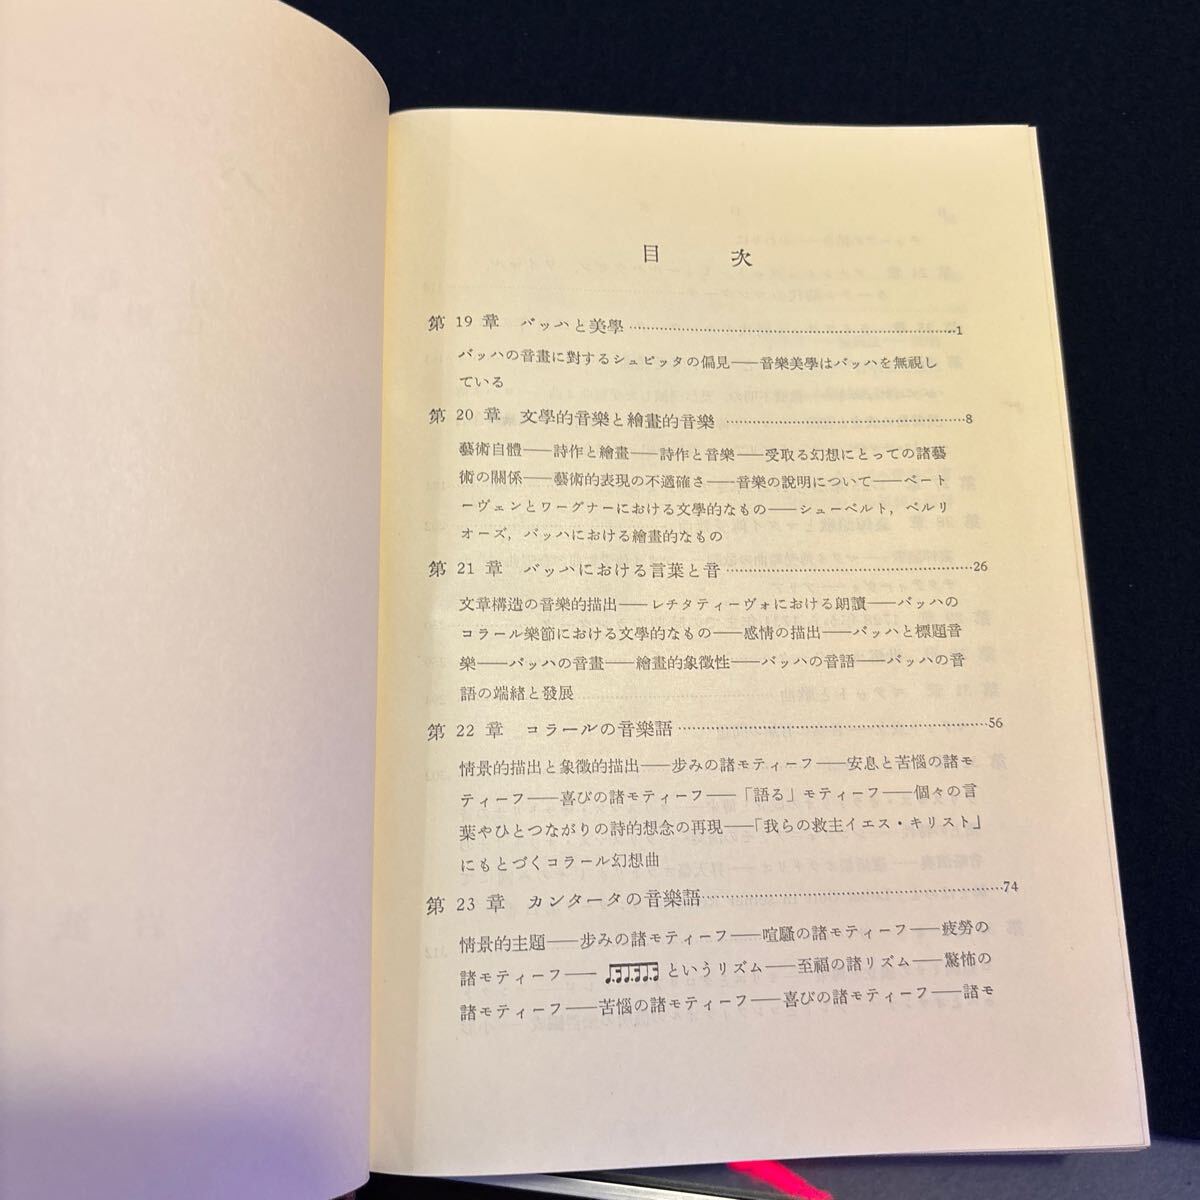 目次
第19章 バッハと美學……………………………………1
バッハの音畫に對するシュピッタの偏見――音樂美學はバッハを無視し
ている
第20章 文學的音樂と繪畫的音樂……………………………8
藝術自體――詩作と繪畫――詩作と音樂――受取る幻想にとっての諸藝
術の關係――藝術的表現の不適確さ――音樂の說明について――ベート
ーヴェンとワーグナーにおける文學的なもの――シューベルト，ベルリ
オーズ，バッハにおける繪畫的なもの
第21章 バッハにおける言葉と音……………………………26
文章構造の音樂的描出――レチタティーヴォにおける朗讀――バッハの
コラール樂節における文學的なもの――感情の描出――バッハと標題音
樂――バッハの音畫――繪畫的象徵性――バッハの音語――バッハの音
語の端緒と發展
第22章 コラールの音樂語……………………………………56
情景的描出と象徵的描出――步みの諸モティーフ――安息と苦惱の諸モ
ティーフ――喜びの諸モティーフ――「語る」モティーフ――個々の言
葉やひとつながりの詩的想念の再現――「我らの救主イエス・キリスト」
にもとづくコラール幻想曲
第23章 カンタータの音樂語…………………………………74
情景的主題――步みの諸モティーフ――喧騷の諸モティーフ――疲勞の
諸モティーフ―― というリズム――至福の諸リズム――驚怖の
諸モティーフ――苦惱の諸モティーフ――喜びの諸モティーフ――諸モ